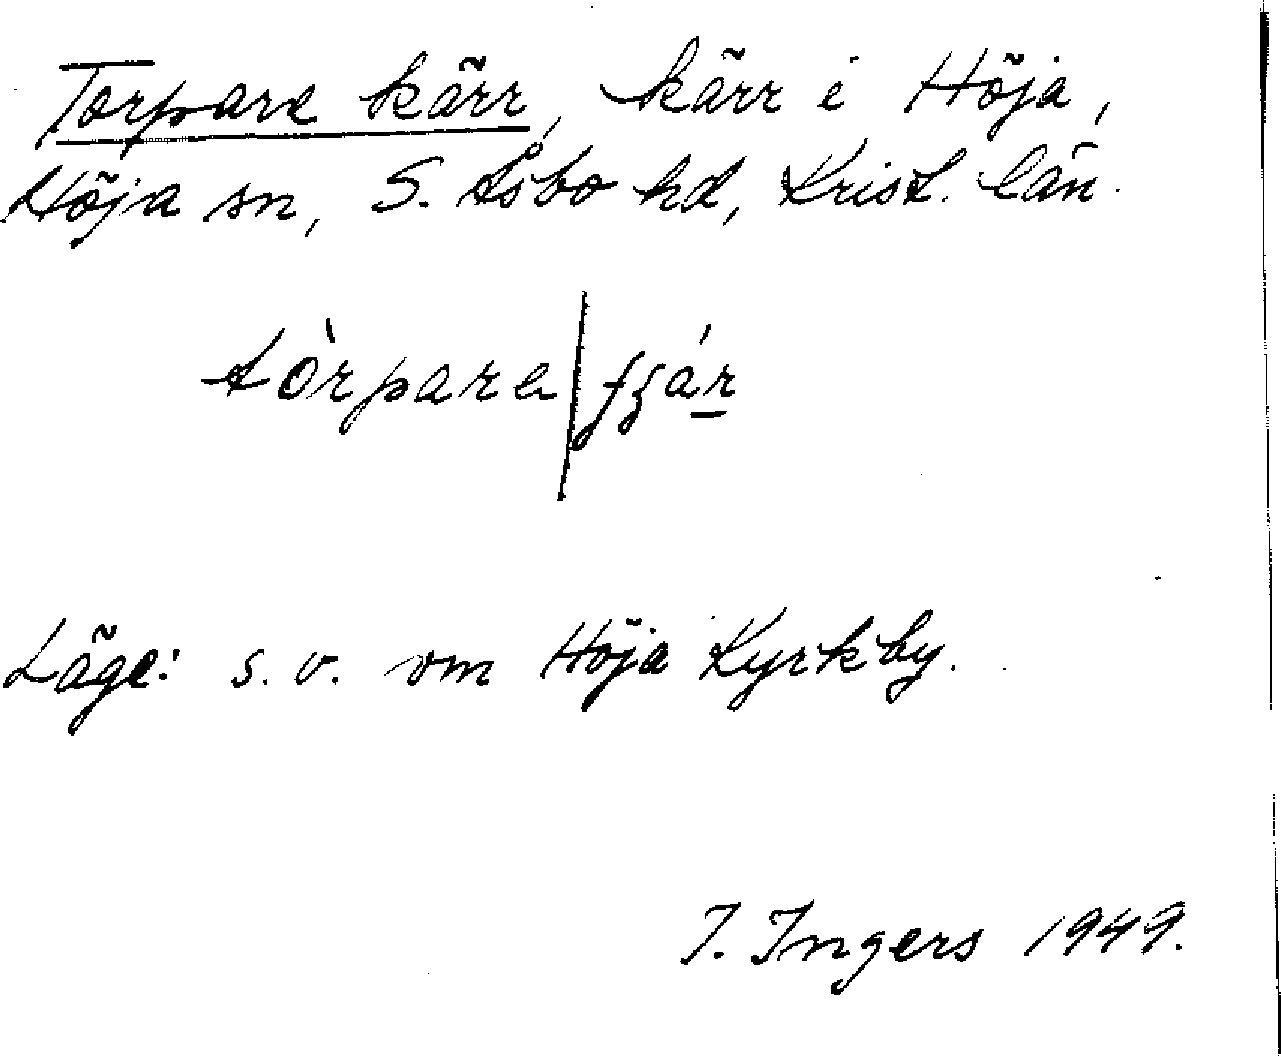 Torpare kärr, kärr i Höja,
Höja sn, S. Åsbo hd, Krist. län.
tòrpara/fʒár
Läge: s. v. om Höja Kyrkby.
I. Ingers 1949.